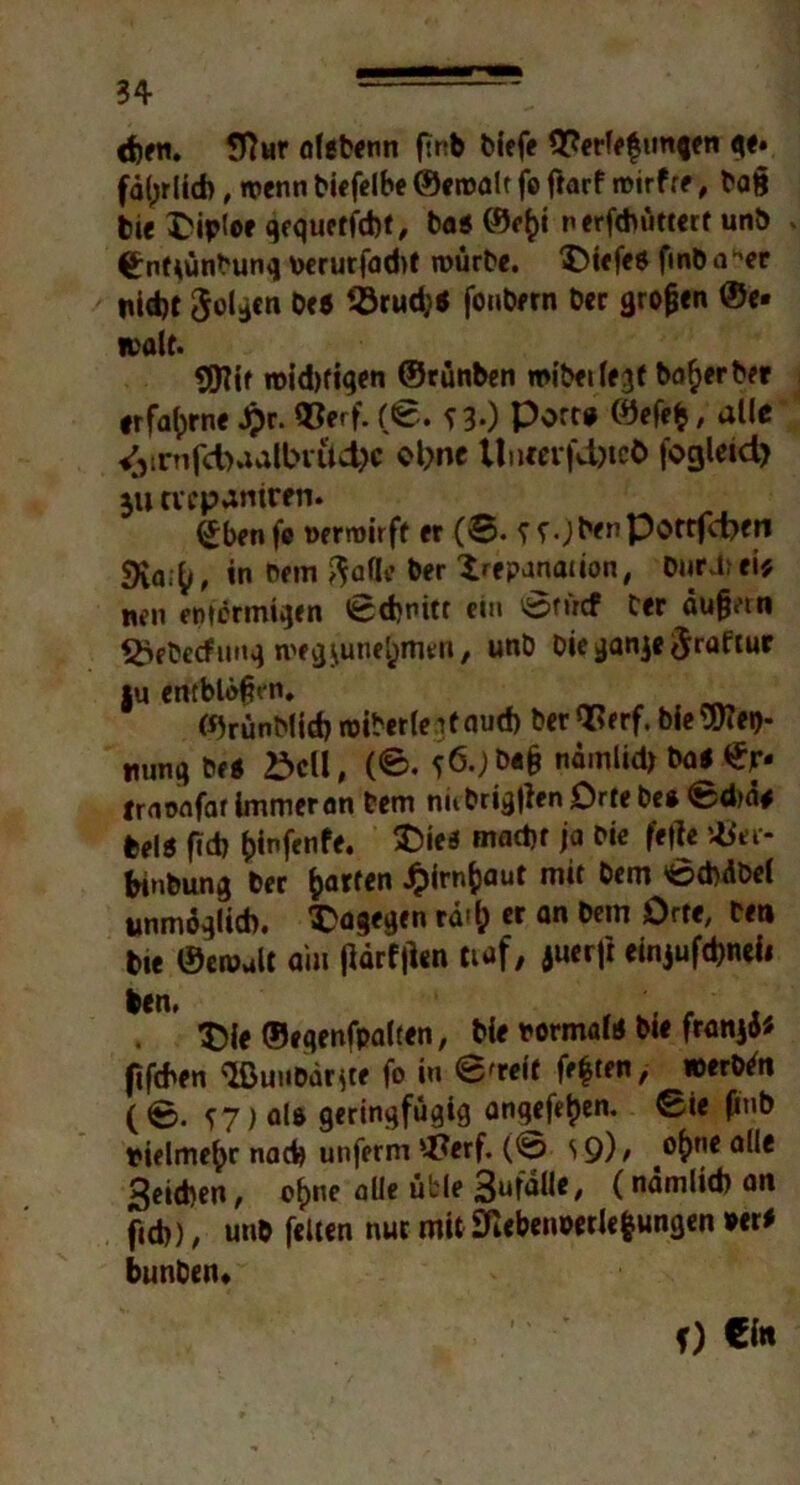 34
chen. Nur alsdenn sind diese Verletzungen ge-
fährlich, wenn dieselbe Gewalt so stark wirkte, daß
die Diploe gequetscht, das Gehi n erschüttert und
Entzündung verursacht würde. Dieses sind aber
nicht Folgen des Bruchs sondern der großen Ge-
walt.
Mit wichtigen Gründen widerlegt daher der
erfahrne Hr. Verf. (S. 53.) Potts Gesetz, alle
Hirnschaalbrüche ohne Unterschied sogleich
zu trepaniren.
Eben so verwirft er (S. 55.) den Pottschen
Rath, in dem Falle der Trepanation, durch ei-
nen enförmigen Schnitt ein Stück der äußern
Bedeckung wegzunehmen, und die ganze Fraktur
zu entblößen.
Gründlich widerlegt auch der Verf. die Mey-
nung des Bell, (S. 56.) daß nämlich das Ex-
travasat immer an dem niedrigsten Orte des Schä-
dels sich hinsenke. Dies macht ja die feste Ver-
bindung der harten Hirnhaut mit dem Schädel
unmöglich. Dagegen räth er an dem Orte, den
die Gewalt am stärksten traf, zuerst einzuschnei-
den.
Die Gegenspalten, die vormals die franzö-
sischen Wundärzte so in Streit setzten, werden
(S. 57) als geringfügig angesehen. Sie sind
vielmehr nach unserm Verf. (S 59), ohne alle
Zeichen, ohne alle üble Zufälle, (nämlich an
sich), und selten nur mit Nebenverletzungen ver-
bunden.
5) Ein